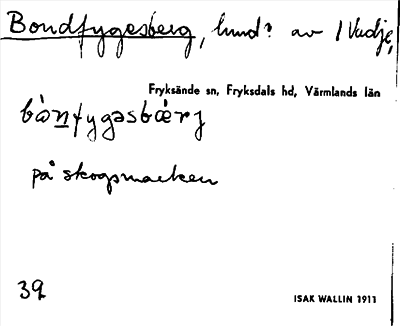 Bondfygesberg, lund? av 1 Vadje,
Fryksände sn, Fryksdals hd, Värmlands län
på skogsmarken
39
ISAK WALLIN 1911